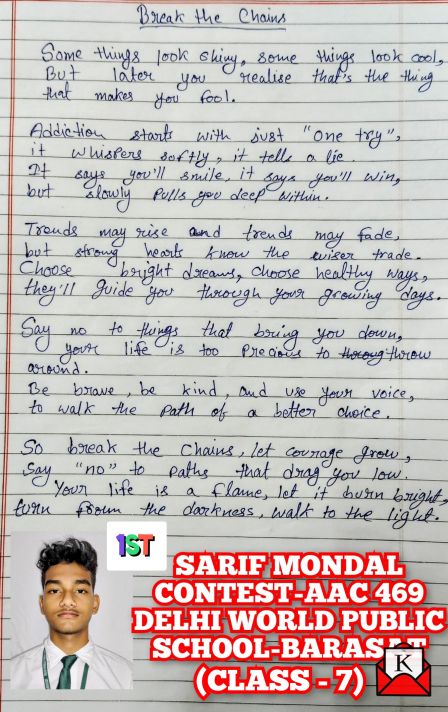 Break the Chains
Some things look shiny, some things look cool,
But later you realise that's the thing
that makes you fool.
Addiction starts with just "One try",
it whispers softly, it tells a lie.
It says you'll smile, it says you'll win,
but slowly pulls you deep within.
Trends may rise and trends may fade,
but strong hearts know the wiser trade.
Choose bright dreams, choose healthy ways,
they'll guide you through your growing days.
Say no to things that bring you down,
your life is too precious to throw
around.
Be brave, be kind, and use your voice,
to walk the path of a better choice.
So break the chains, let courage grow,
Say "no" to paths that drag you low.
Your life is a flame, let it burn bright,
turn from the darkness, walk to the light.
1ST
SARIF MONDAL
CONTEST-AAC 469
DELHI WORLD PUBLIC
SCHOOL-
(CLASS - 7)
K